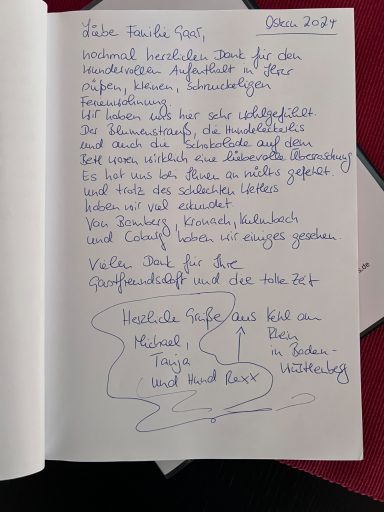 Ostern 2024
Liebe Familie Gaar,
nochmal herzlichen Dank für den
wundervollen Aufenthalt in Ihrer
süßen, kleinen, schnuckeligen
Ferienwohnung.
Wir haben uns hier sehr wohlgefühlt.
Der Blumenstrauß, die Hundeleckerlis
und auch die Schokolade auf dem
Bett waren wirklich eine liebevolle Überraschung
Es hat uns bei Ihnen an nichts gefehlt.
und trotz des schlechten Wetters
haben wir viel erkundet.
Von Bamberg, Kronach, Kulmbach
und Coburg haben wir einiges gesehen.
Vielen Dank für Ihre
Gastfreundschaft und die tolle Zeit
Herzliche Grüße aus Kehl am
Rhein
in Baden-
Württemberg
Michael,
Tanja
und Hund Rexx